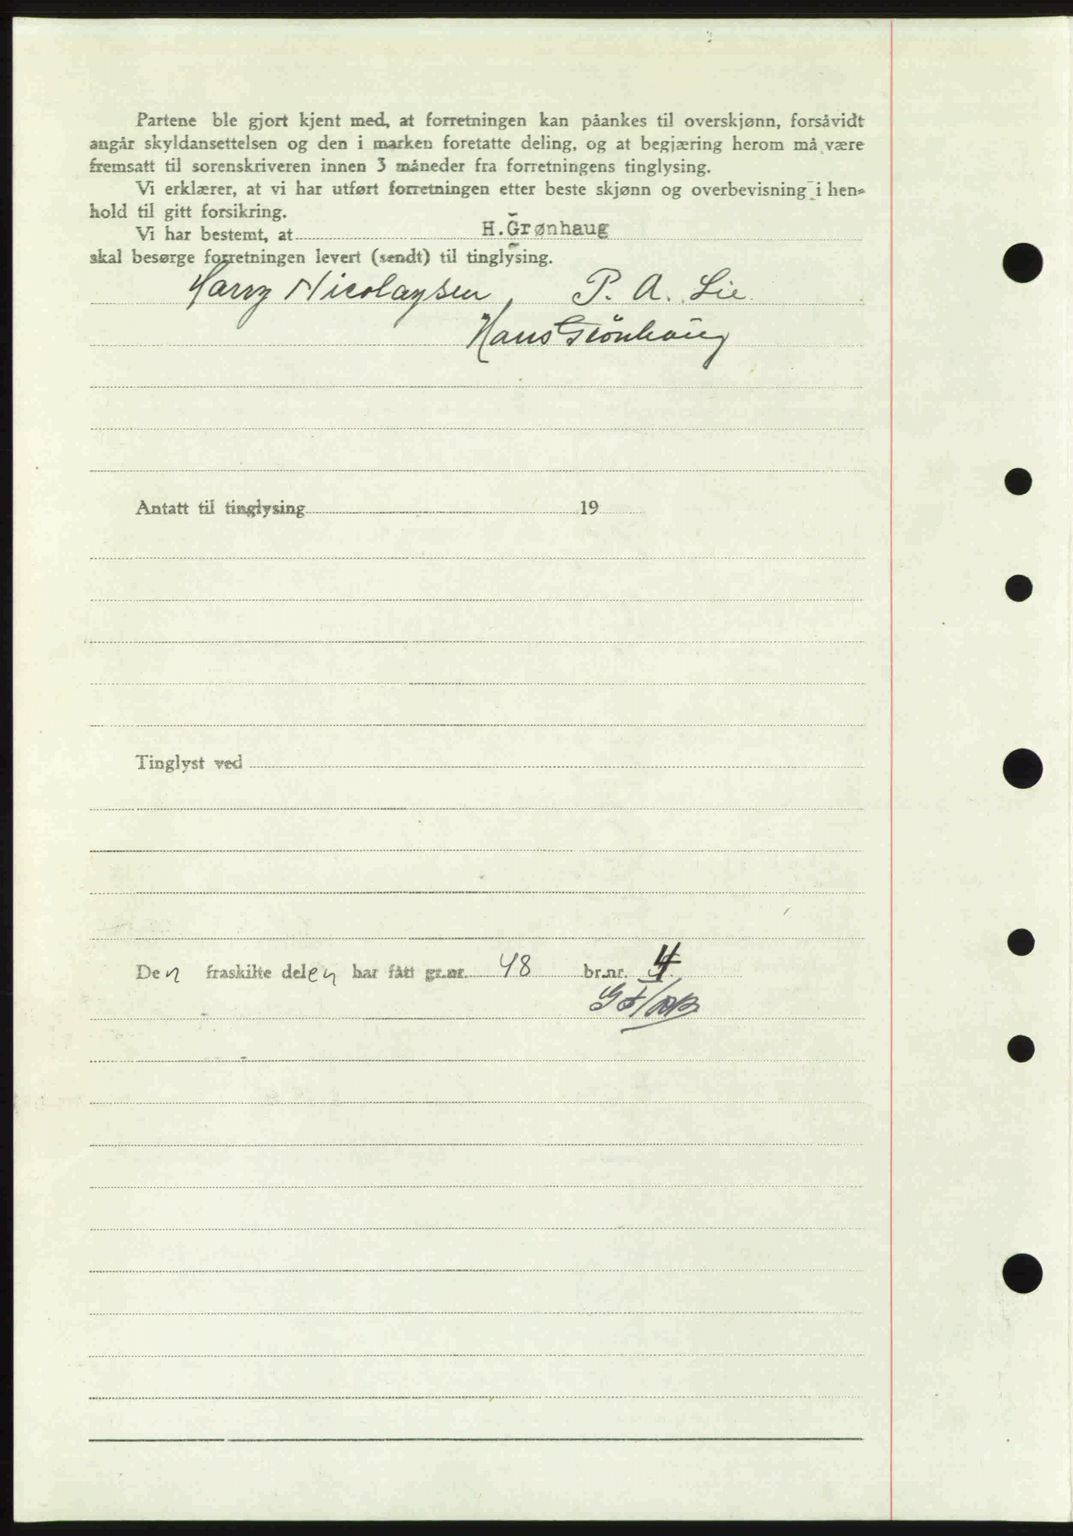 Partene ble gjort kjent med, at forretningen kan påankes til overskjønn, forsåvidt
angår skyldansettelsen og den i marken foretatte deling, og at begjæring herom må være
fremsatt til sorenskriveren innen 3 måneder fra forretningens tinglysing.
Vi erklærer, at vi har utført forretningen etter beste skjønn og overbevisning i hen-
hold til gitt forsikring.
Vi har bestemt, at H.Grønhaug
skal besørge forretningen levert (sendt) til tinglysing.
Harry Nicolaysen P. A. Lie
Hans Grönhaug
Antatt til tinglysing 19
Tinglyst ved
Den fraskilte delen har fått gr.nr. 48 br.nr. 4